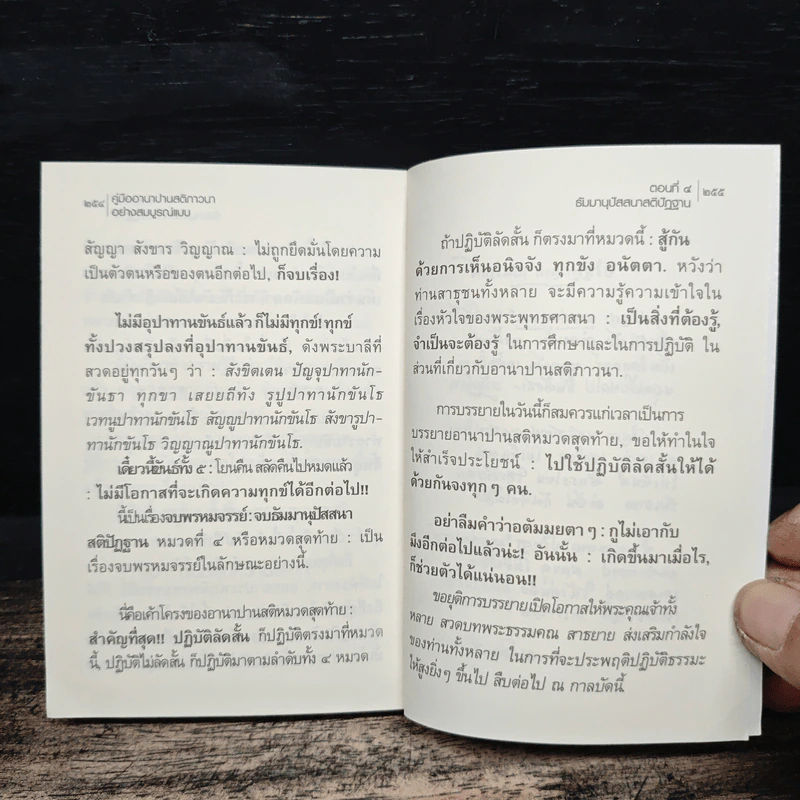 ๒๕๔ คู่มืออานาปานสติภาวนา
อย่างสมบูรณ์แบบ
สัญญา สังขาร วิญญาณ : ไม่ถูกยึดมั่นโดยความ
เป็นตัวตนหรือของตนอีกต่อไป, ก็จบเรื่อง!
ไม่มีอุปาทานขันธ์แล้ว ก็ไม่มีทุกข์! ทุกข์
ทั้งปวงสรุปลงที่อุปาทานขันธ์, ดังพระบาลีที่
สวดอยู่ทุกวันๆ ว่า : สังขิตเตน ปัญจุปาทานัก-
ขันธา ทุกขา เสยยถีทัง รูปูปาทานักขันโธ
เวทนูปาทานักขันโธ สัญญูปาทานักขันโธ สังขารูปา-
ทานักขันโธ วิญญาณูปาทานักขันโธ.
เดี๋ยวนี้ขันธ์ทั้ง ๕ : โยนคืน สลัดคืนไปหมดแล้ว
: ไม่มีโอกาสที่จะเกิดความทุกข์ได้อีกต่อไป!!
นี้เป็นเรื่องจบพรหมจรรย์ : จบธัมมานุปัสสนา
สติปัฏฐาน หมวดที่ ๔ หรือหมวดสุดท้าย : เป็น
เรื่องจบพรหมจรรย์ในลักษณะอย่างนี้.
นี่คือเค้าโครงของอานาปานสติหมวดสุดท้าย :
สำคัญที่สุด!! ปฏิบัติลัดสั้น ก็ปฏิบัติตรงมาที่หมวด
นี้, ปฏิบัติไม่ลัดสั้น ก็ปฏิบัติมาตามลำดับทั้ง ๔ หมวด
ตอนที่ ๔ ๒๕๕
ธัมมานุปัสสนาสติปัฏฐาน
ถ้าปฏิบัติลัดสั้น ก็ตรงมาที่หมวดนี้ : สู้กัน
ด้วยการเห็นอนิจจัง ทุกขัง อนัตตา. หวังว่า
ท่านสาธุชนทั้งหลาย จะมีความรู้ความเข้าใจใน
เรื่องหัวใจของพระพุทธศาสนา : เป็นสิ่งที่ต้องรู้,
จำเป็นจะต้องรู้ ในการศึกษาและในการปฏิบัติ ใน
ส่วนที่เกี่ยวกับอานาปานสติภาวนา.
การบรรยายในวันนี้ก็สมควรแก่เวลาเป็นการ
บรรยายอานาปานสติหมวดสุดท้าย, ขอให้ทำในใจ
ให้สำเร็จประโยชน์ : ไปใช้ปฏิบัติลัดสั้นให้ได้
ด้วยกันจงทุกๆ คน.
อย่าลืมคำว่าอตัมมยตาๆ : กูไม่เอากับ
มึงอีกต่อไปแล้วน่ะ! อันนั้น : เกิดขึ้นมาเมื่อไร,
ก็ช่วยตัวได้แน่นอน!!
ขอยุติการบรรยายเปิดโอกาสให้พระคุณเจ้าทั้ง
หลาย สวดบทพระธรรมคณ สาธยาย ส่งเสริมกำลังใจ
ของท่านทั้งหลาย ในการที่จะประพฤติปฏิบัติธรรมะ
ให้สูงยิ่งๆ ขึ้นไป สืบต่อไป ณ กาลบัดนี้.